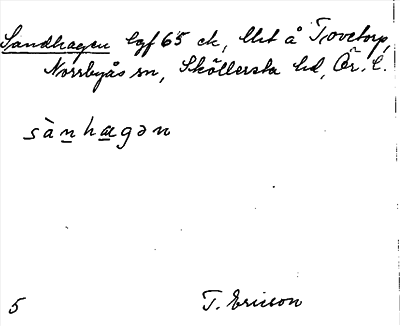 Sandhagen lgf 65 ck, lht å Tovetorp,
Norrbyås sn, Sköllersta hd, Ör. l.
sànhagən
5 T. Ericson